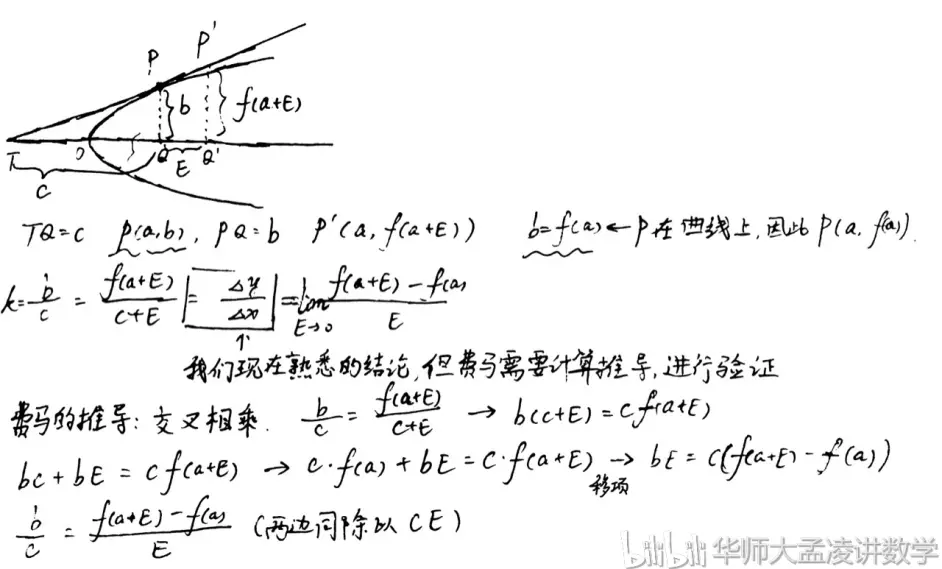 P P'
b f(a+E)
T O Q E Q'
C
TQ=c P(a,b), PQ=b P'(a, f(a+E)) b=f(a)←P在曲线上,因此P(a, f(a)).
k=b/c = f(a+E)/(c+E) = Δy/Δx = lim E→0 (f(a+E)-f(a))/E
↑
我们现在熟悉的结论,但费马需要计算推导,进行验证
费马的推导:交叉相乘. b/c = f(a+E)/(c+E) → b(c+E)=cf(a+E)
bc+bE=cf(a+E) → c·f(a)+bE=c·f(a+E) → 移项 bE=c(f(a+E)-f(a))
b/c = (f(a+E)-f(a))/E (两边同除以CE)
bilibili 华师大孟凌讲数学